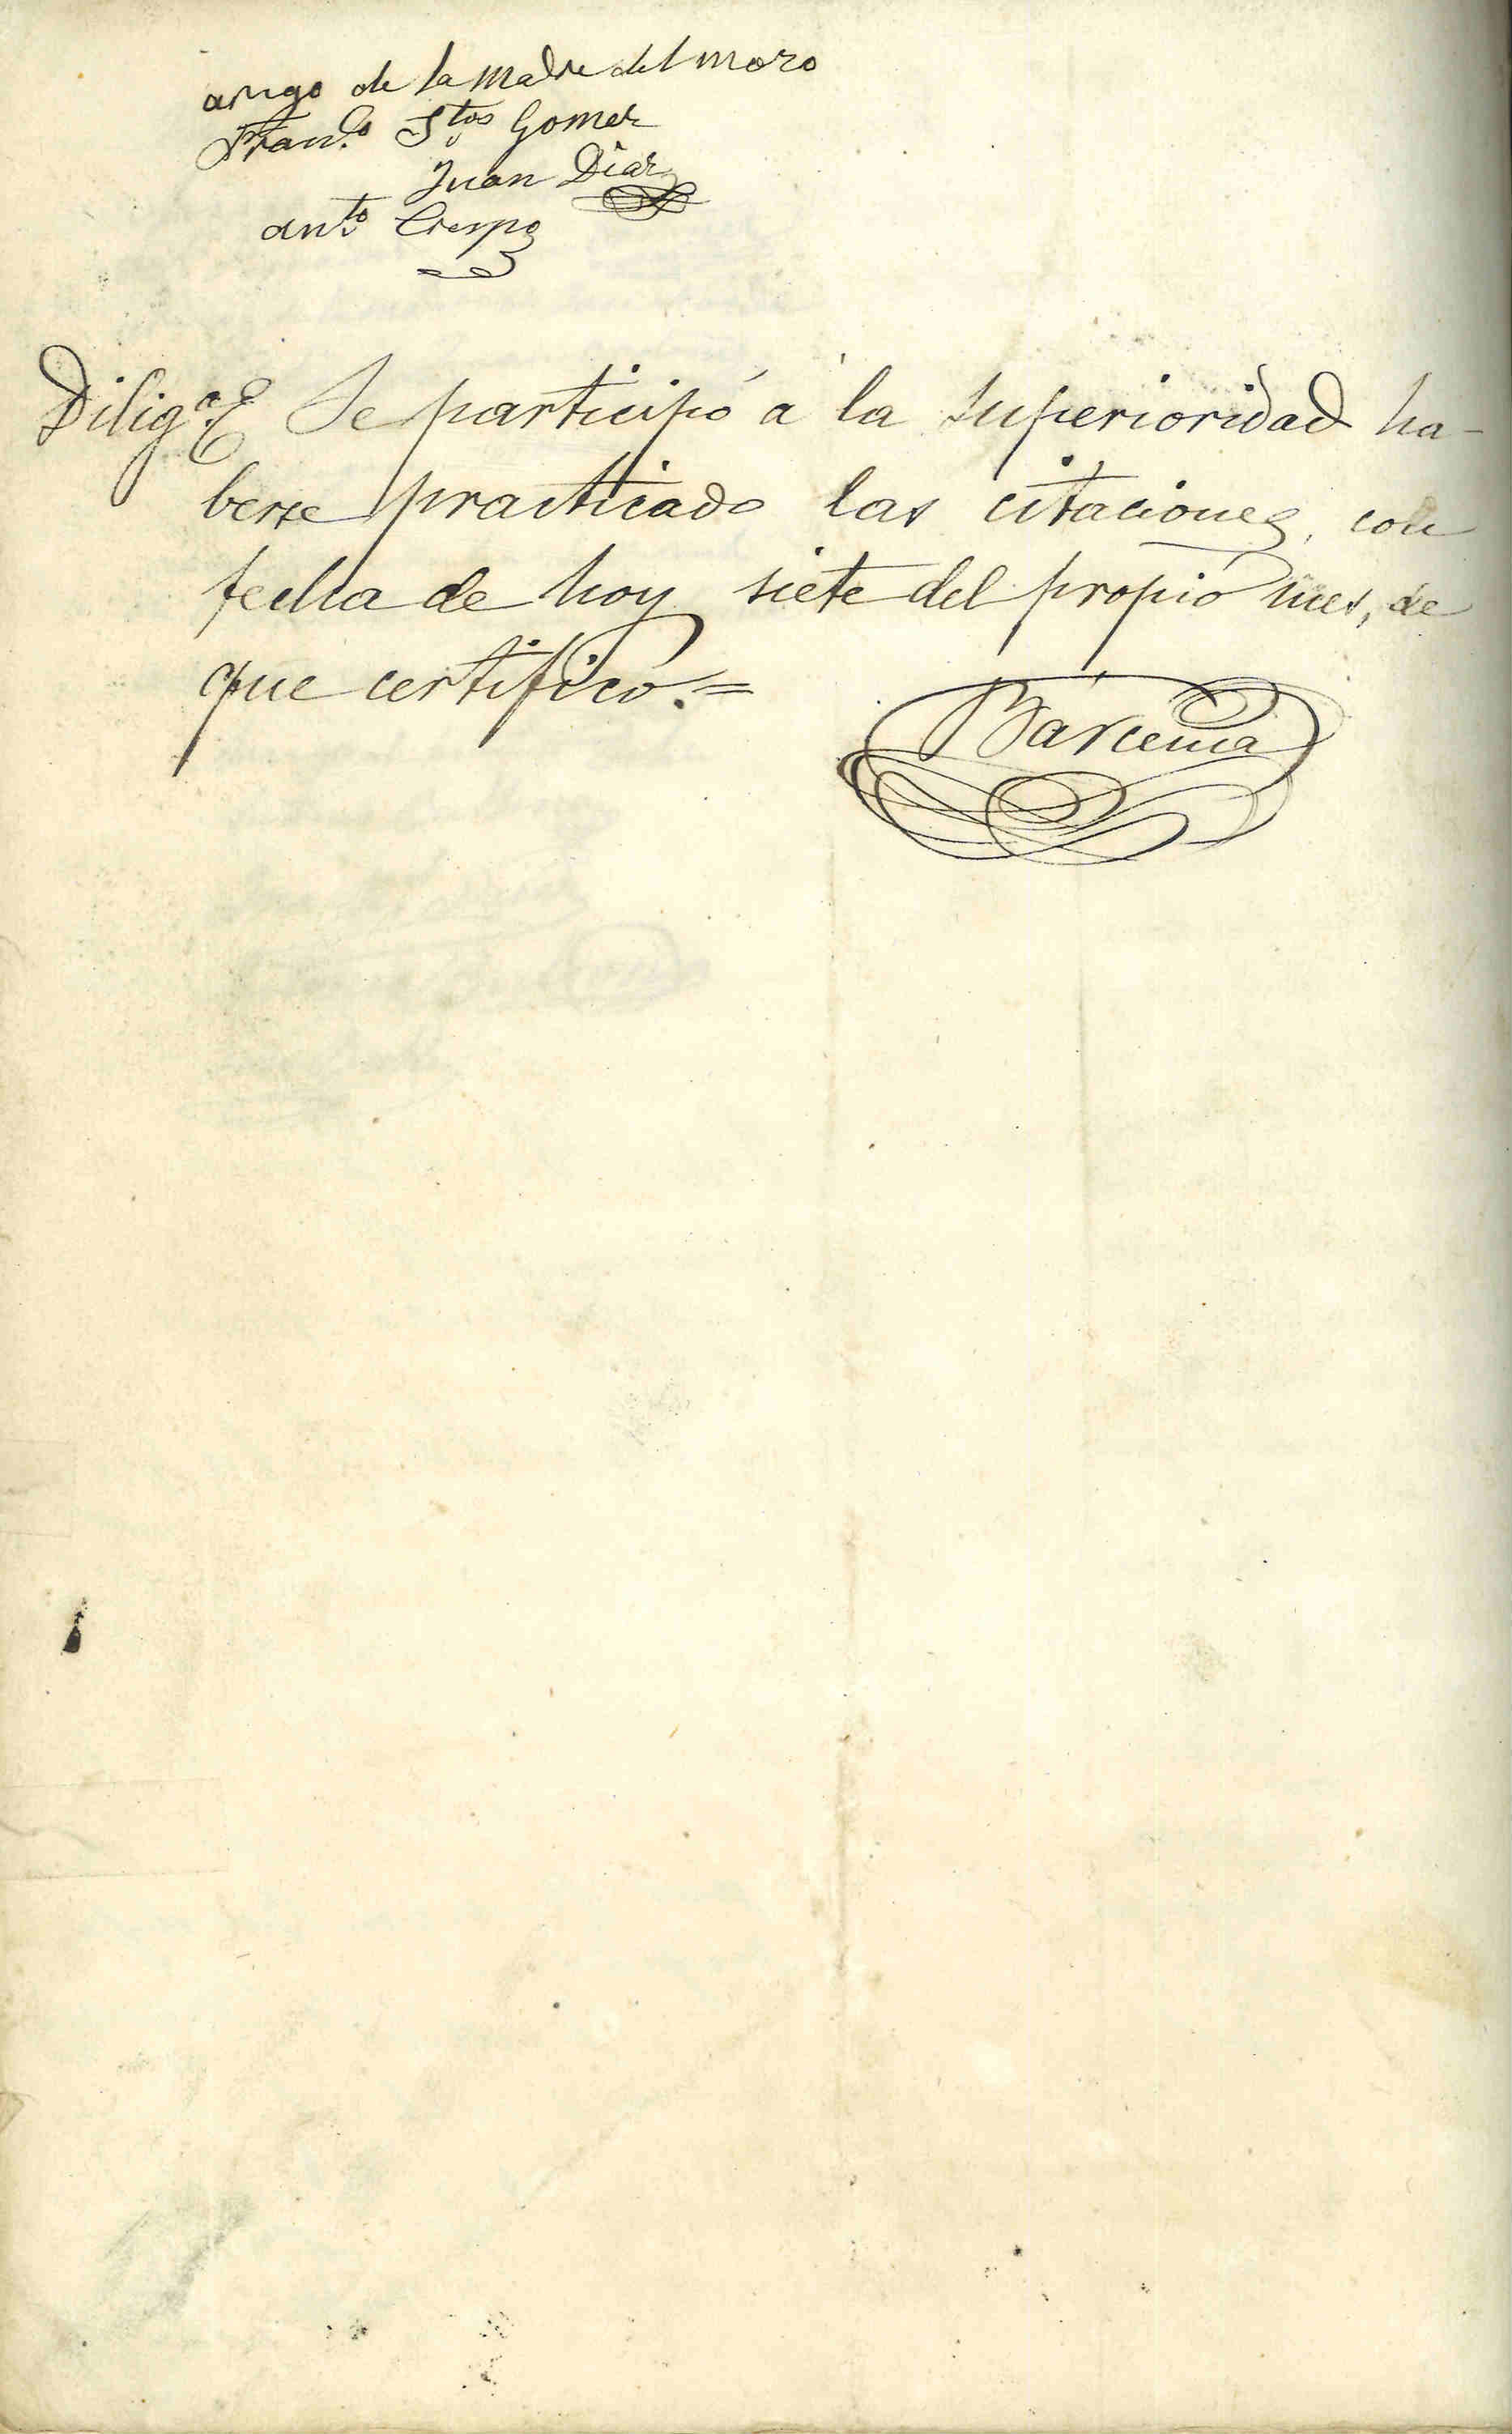 arugo de la Madre del moro
Franco. Stos Gomez
Juan Diaz
anto. Crespo
Diliga. Se participó á la Superioridad ha-
berse practicado las citaciones, con
fecha de hoy siete del propio mes, de
que certifico.=
Bárcena